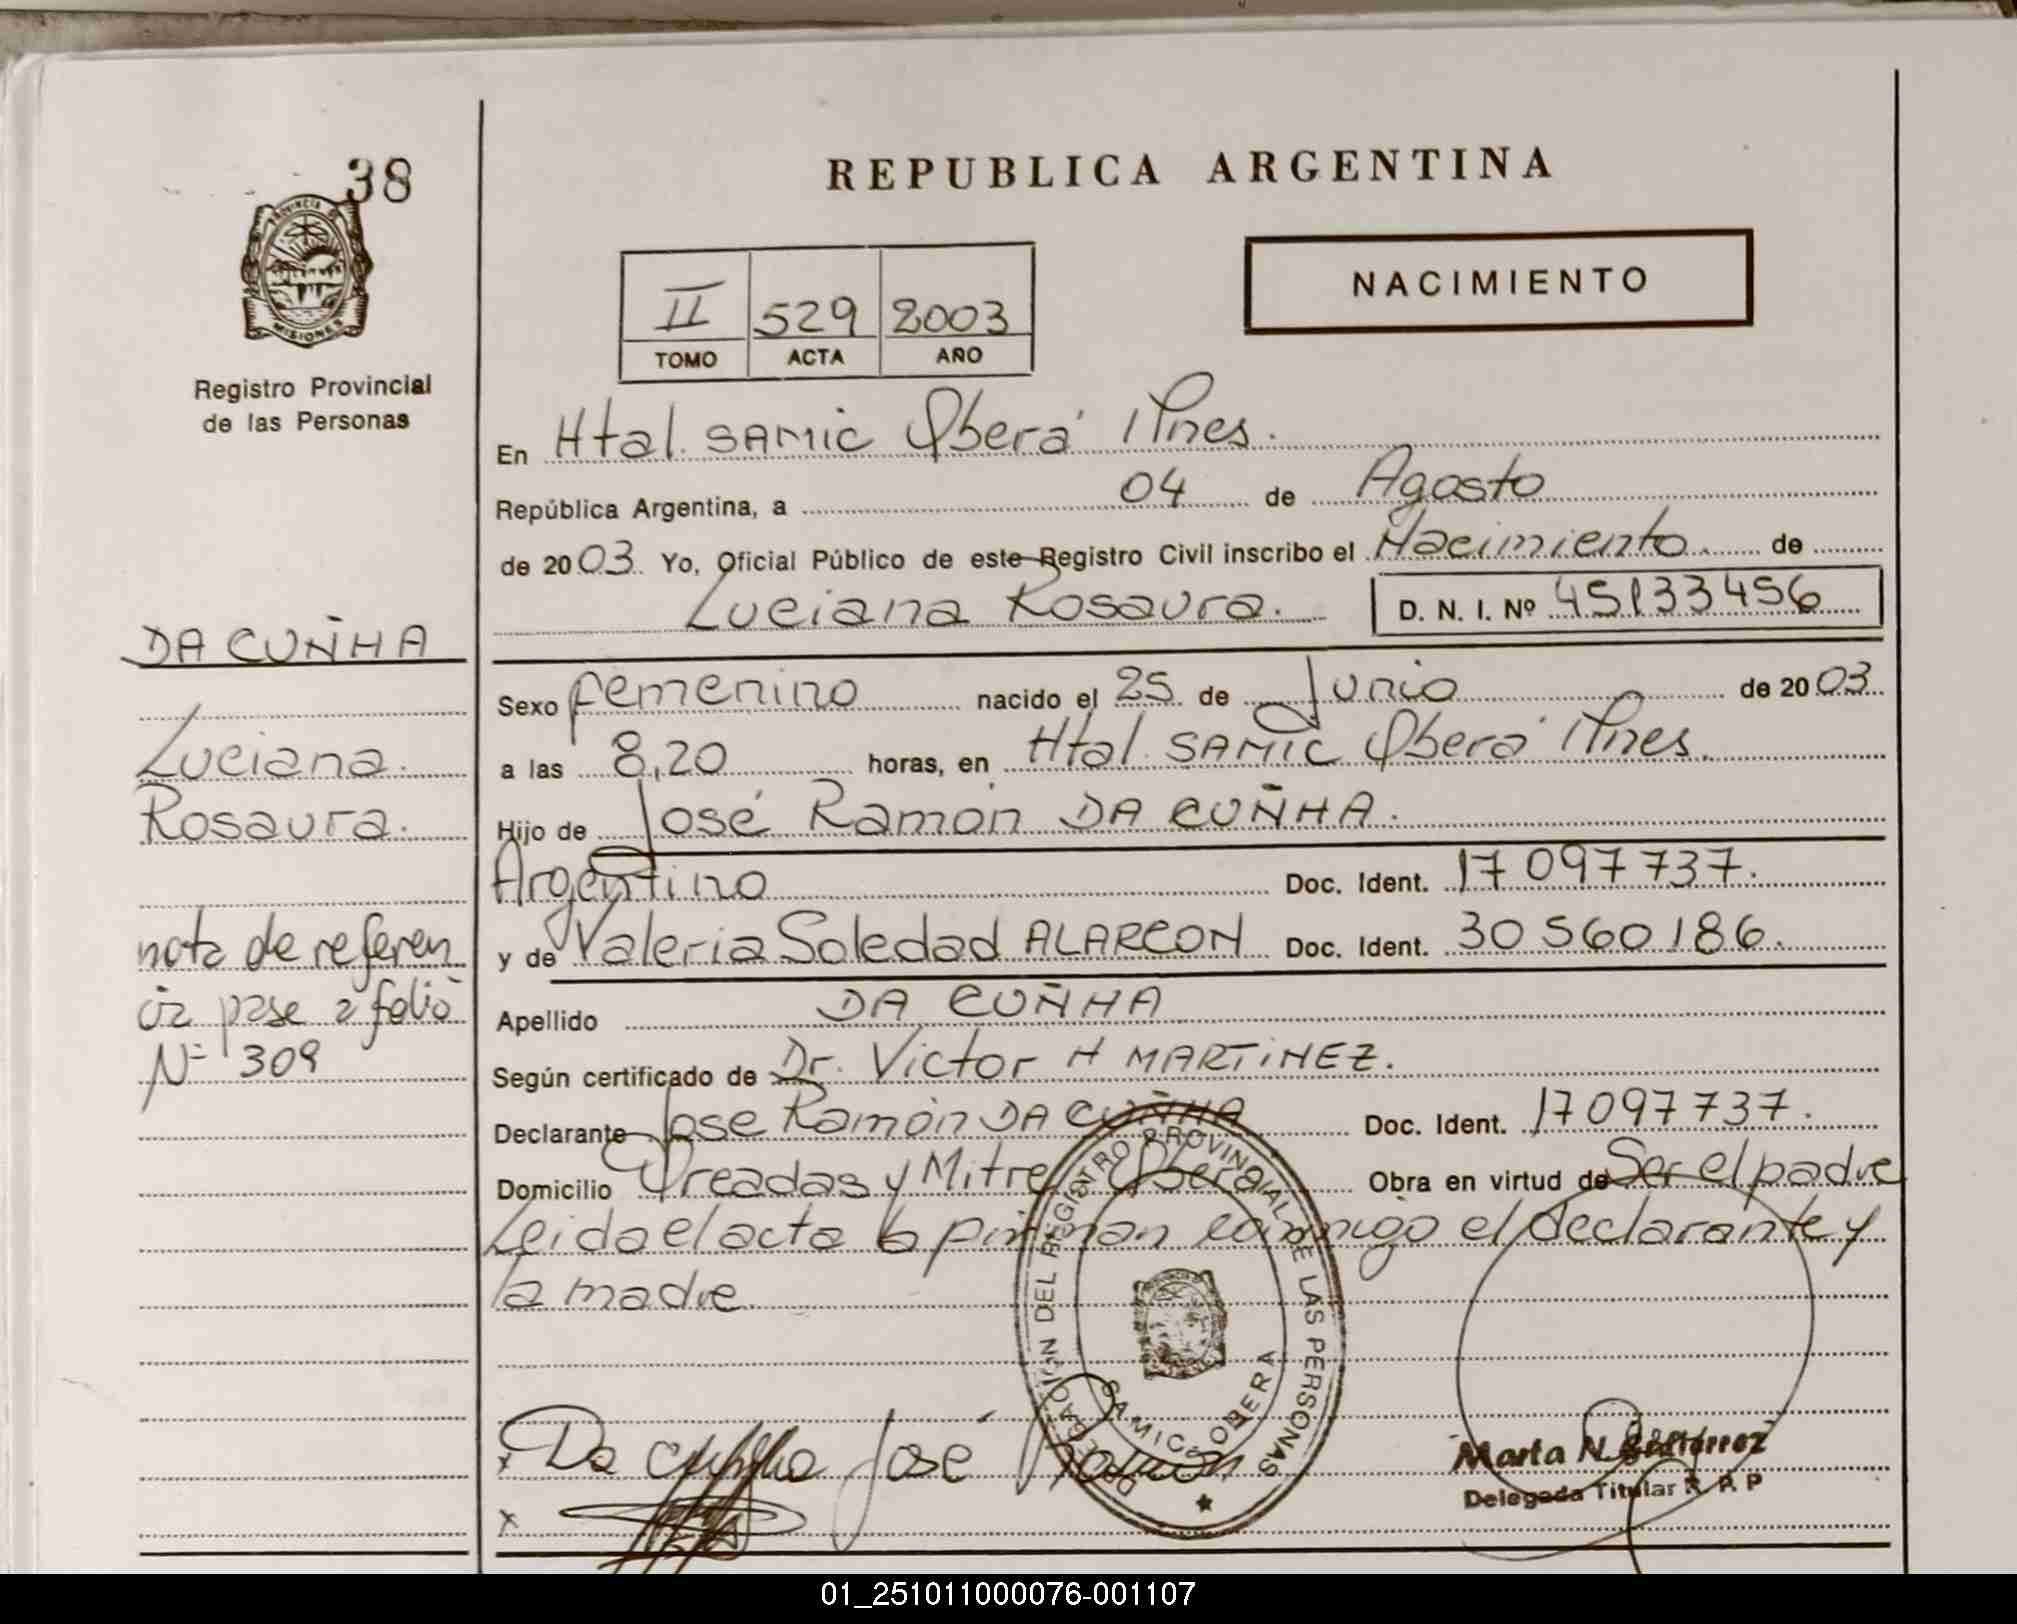 38
PROVINCIA DE
MISIONES
Registro Provincial
de las Personas
REPUBLICA ARGENTINA
II 529 2003
TOMO ACTA AÑO
NACIMIENTO
En Htal. SAMIC Oberá Mnes.
República Argentina, a 04 de Agosto
de 2003 Yo, Oficial Público de este Registro Civil inscribo el Nacimiento de
Luciana Rosaura. D. N. I. Nº 45133456
DA CUÑHA
Luciana
Rosaura.
nota de referen
cia pase a folio
Nº 309
Sexo femenino nacido el 25 de Junio de 2003
a las 8,20 horas, en Htal. SAMIC Oberá Mnes.
Hijo de José Ramón DA CUÑHA.
Argentino Doc. Ident. 17 097 737.
y de Valeria Soledad ALARCON Doc. Ident. 30 560 186.
Apellido DA CUÑHA
Según certificado de Dr. Victor H MARTINEZ.
Declarante Jose Ramón DA CUÑHA Doc. Ident. 17 097 737.
Domicilio Oreadas y Mitre Oberá Obra en virtud de Ser el padre
Leida el acta la firman conmigo el declarante y
la madre
DELEGACION DEL REGISTRO PROVINCIAL DE LAS PERSONAS
SAMIC - OBERA
x Da cuñha José Ramón
x
Marta N. Gutierrez
Delegada Titular R. P. P
01_251011000076-001107